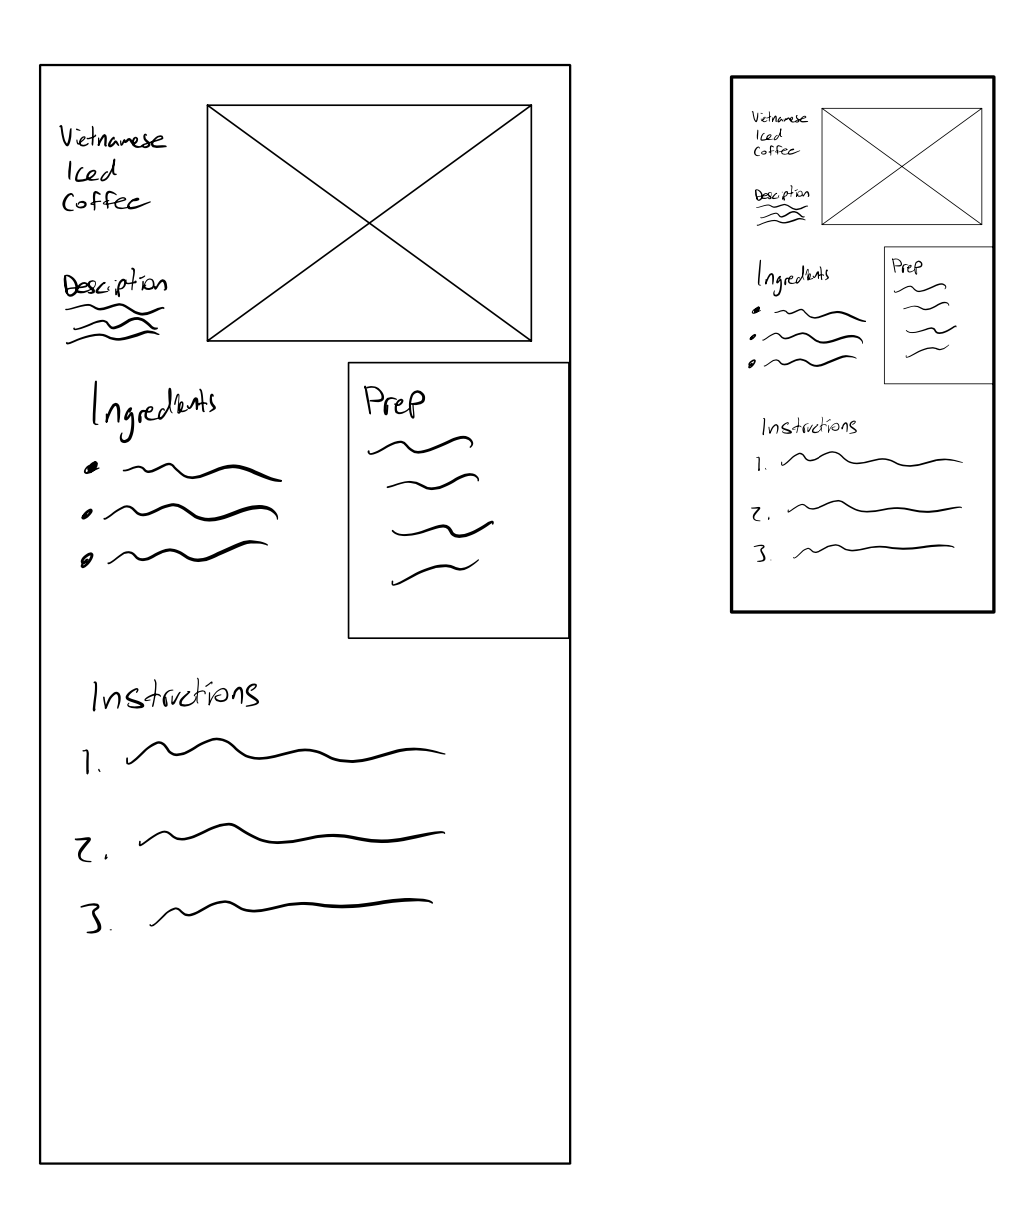 Vietnamese
Iced
Coffee
Description
Ingredients
Prep
Instructions
1.
2.
3.
Vietnamese
Iced
Coffee
Description
Ingredients
Prep
Instructions
1.
2.
3.